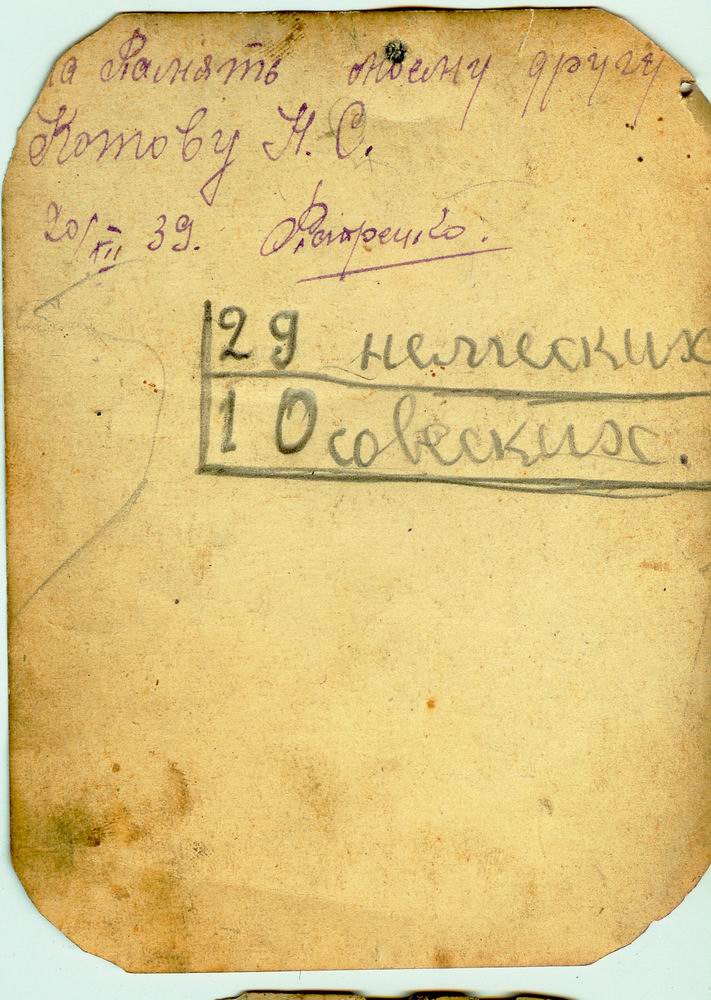 на Память моему другу
Котову Н. С.
20/XII 39.
29 немческих
10 совеских.